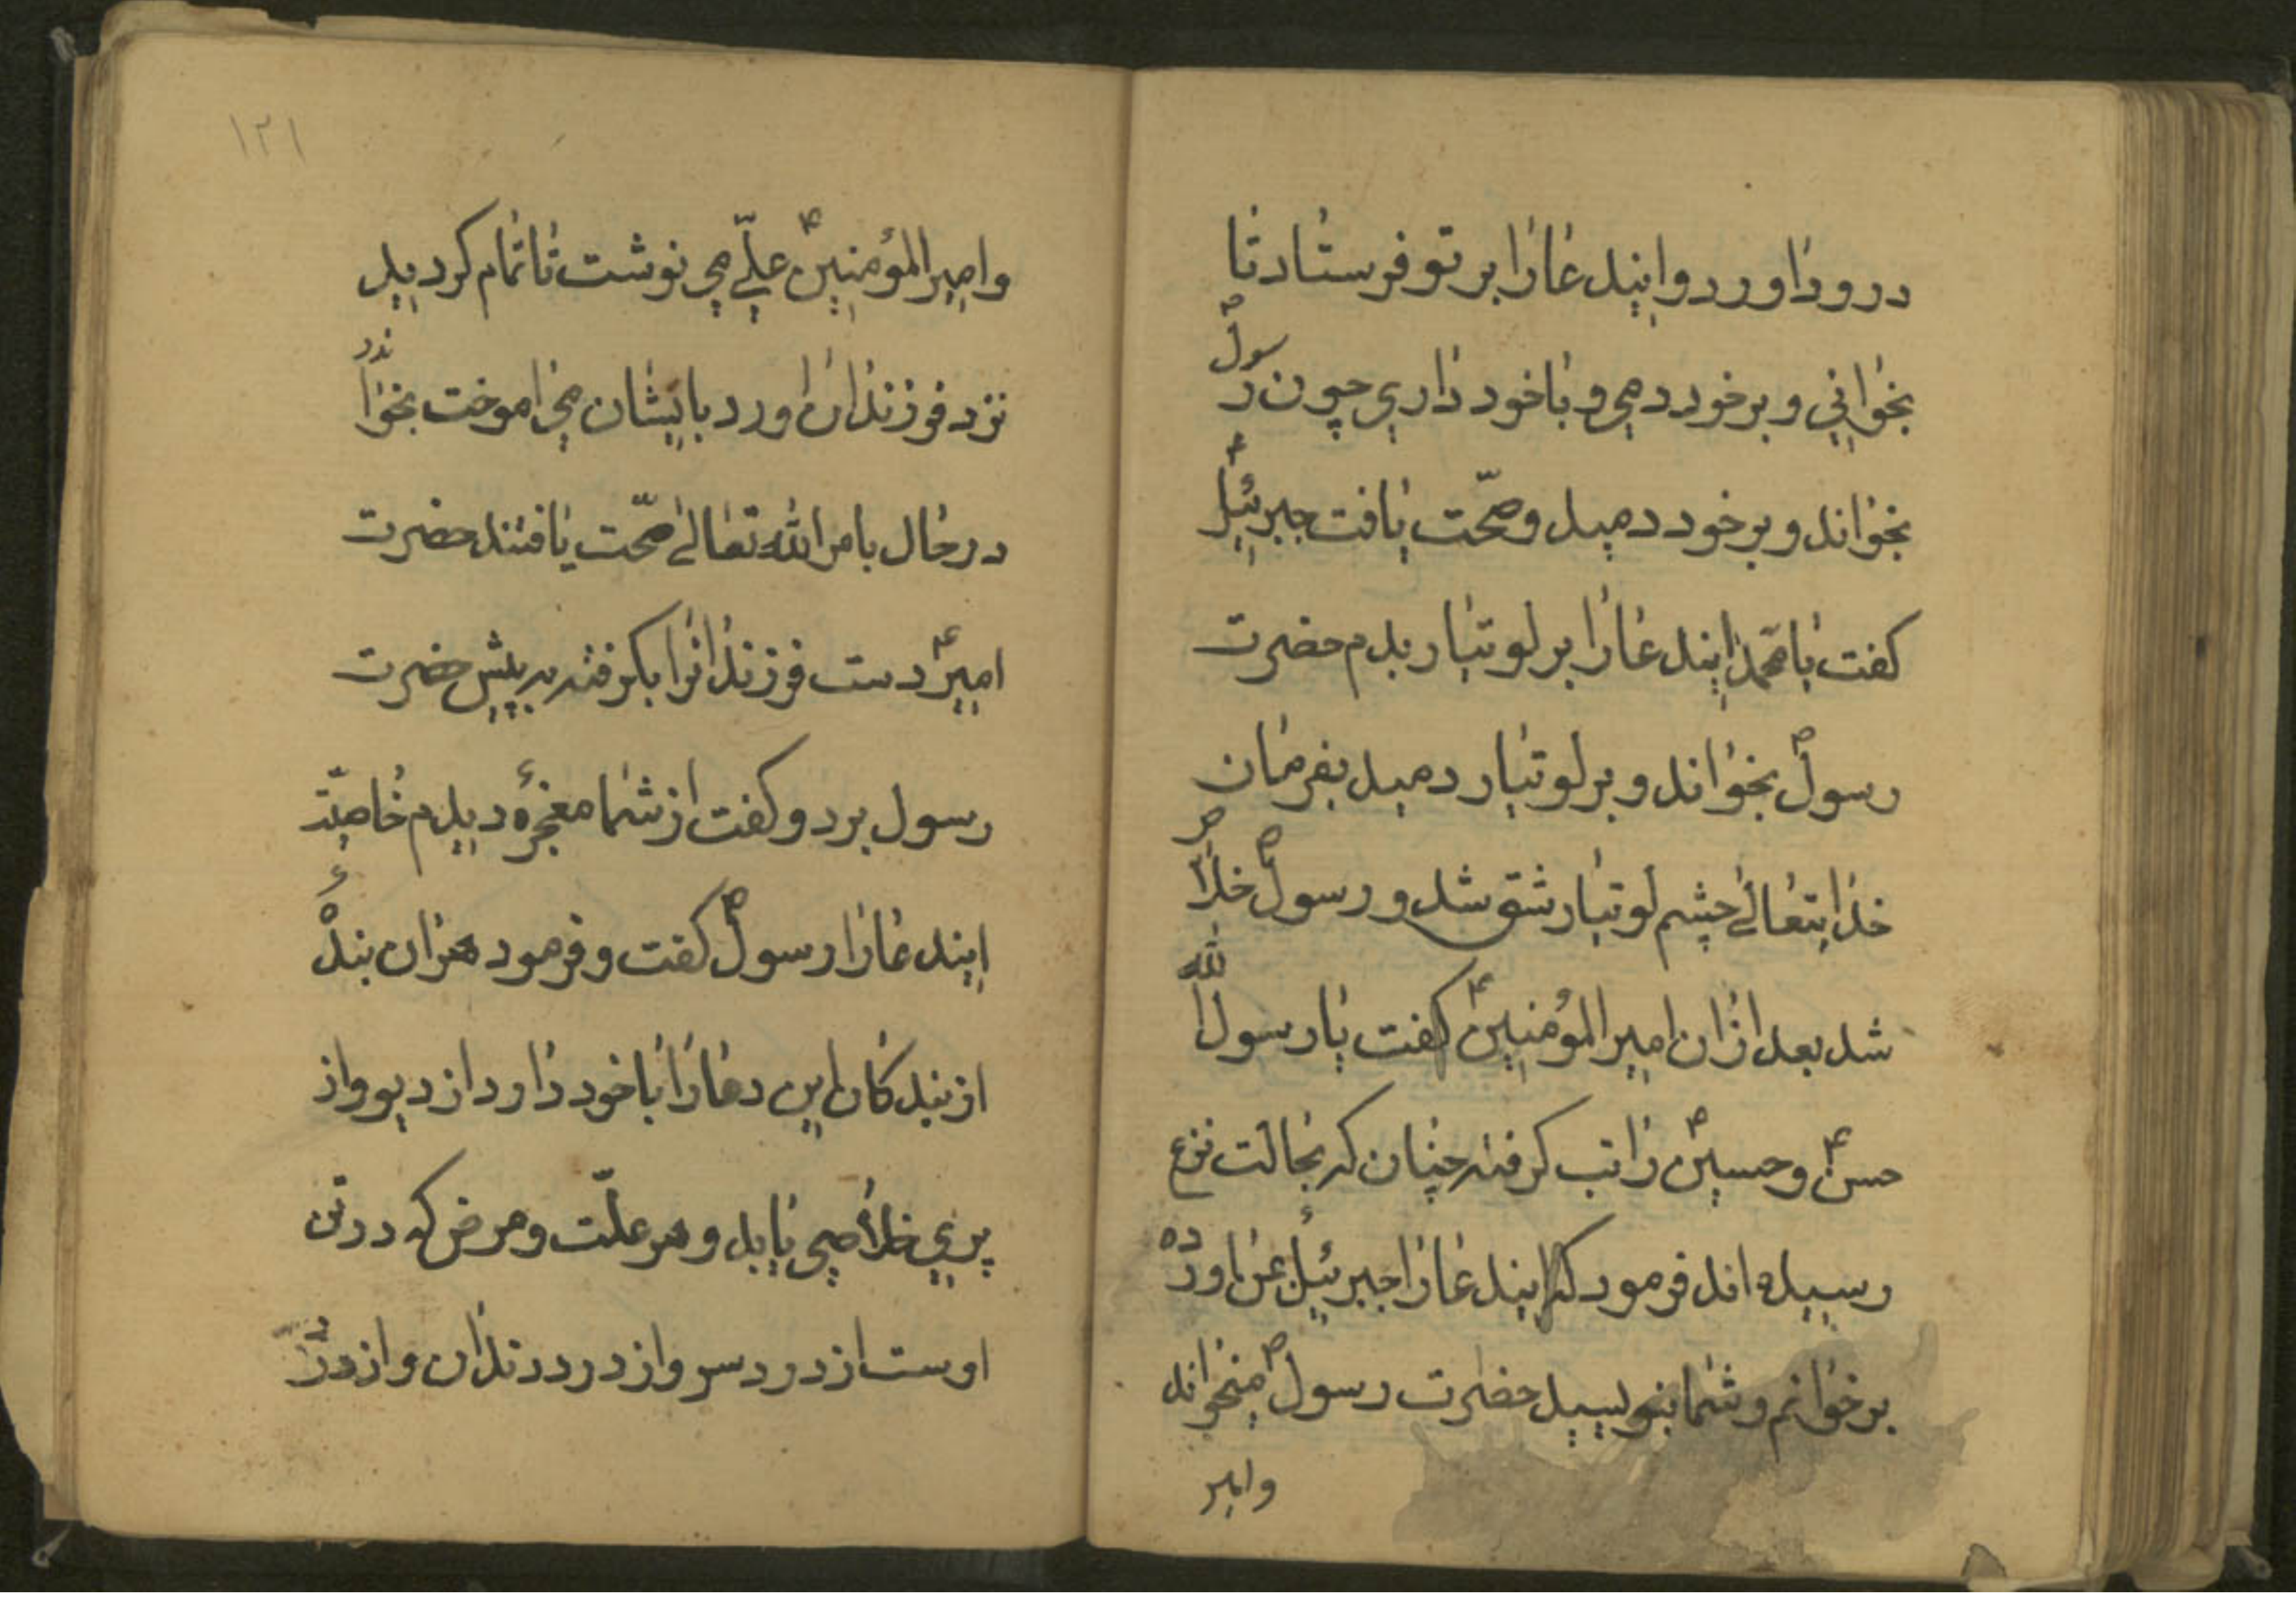 درود اورد و ایندعا را بر تو فرستاد تا
بخوانی و بر خود دمی و با خود داری چون رسولؐ
بخواند و بر خود دمید و صحّت یافت جبرئیلؑ
کفت یا محمد ایندعا را بر لوتبار بدم حضرت
رسولؐ بخواند و بر لوتبار دمید بفرمان
خدایتعالی چشم لوتبار شق شد و رسولؐ خلاص
شد بعد ازان امیرالمؤمنینؑ کفت یا رسول الله
حسنؑ و حسینؑ را تب کرفته چنان که بحالت نزع
رسیده اند فرمود که ایندعا را جبرئیلؑ بمن اورده
بر خوانم و شما بنویسید حضرت رسولؐ میخواند
وامیر
۱۲۱
وامیرالمؤمنینؑ علی می نوشت تا تمام کردید
نزد فرزندان اورد بایشان می اموخت بخواندند
در حال بامر الله تعالی صحّت یافتند حضرت
امیرؑ دست فرزندانرا بکرفته به پیش حضرت
رسول برد و کفت از شما معجزهٔ دیدم خاصیّت
ایندعا را رسولؐ کفت و فرمود هران بندهٔ
از بندکان این دعا را با خود دارد از دیو و از
پری خلاصی یابد و هر علّت و مرض که در تن
اوست از درد سر و از درد دندان و از درد